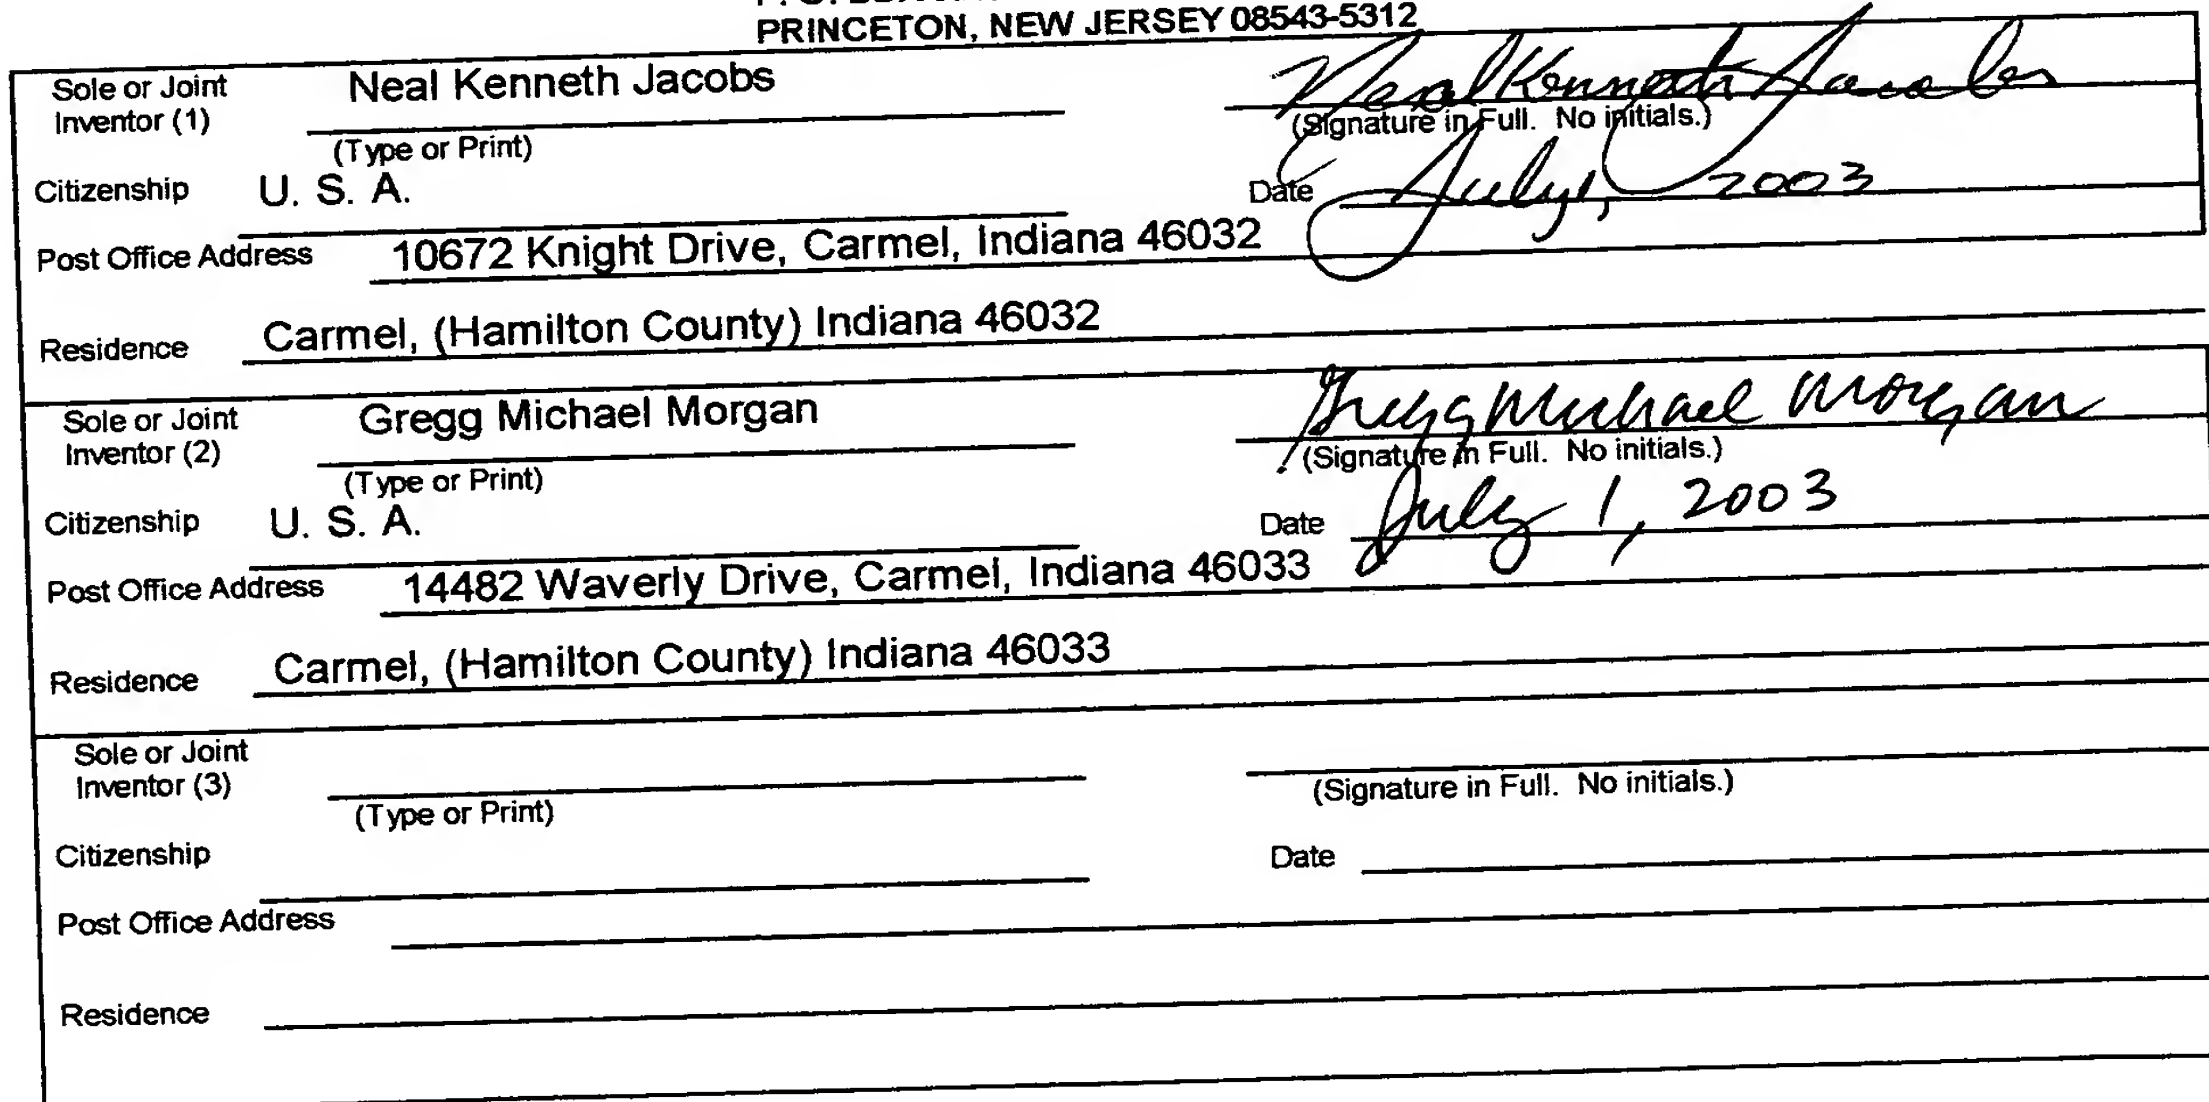 PRINCETON, NEW JERSEY 08543-5312
Sole or Joint Neal Kenneth Jacobs Neal Kenneth Jacobs
Inventor (1)
(Type or Print) (Signature in Full. No initials.)
Citizenship U. S. A. Date July 1, 2003
Post Office Address 10672 Knight Drive, Carmel, Indiana 46032
Residence Carmel, (Hamilton County) Indiana 46032
Sole or Joint Gregg Michael Morgan Gregg Michael Morgan
Inventor (2)
(Type or Print) (Signature in Full. No initials.)
Citizenship U. S. A. Date July 1, 2003
Post Office Address 14482 Waverly Drive, Carmel, Indiana 46033
Residence Carmel, (Hamilton County) Indiana 46033
Sole or Joint
Inventor (3)
(Type or Print) (Signature in Full. No initials.)
Citizenship Date
Post Office Address
Residence